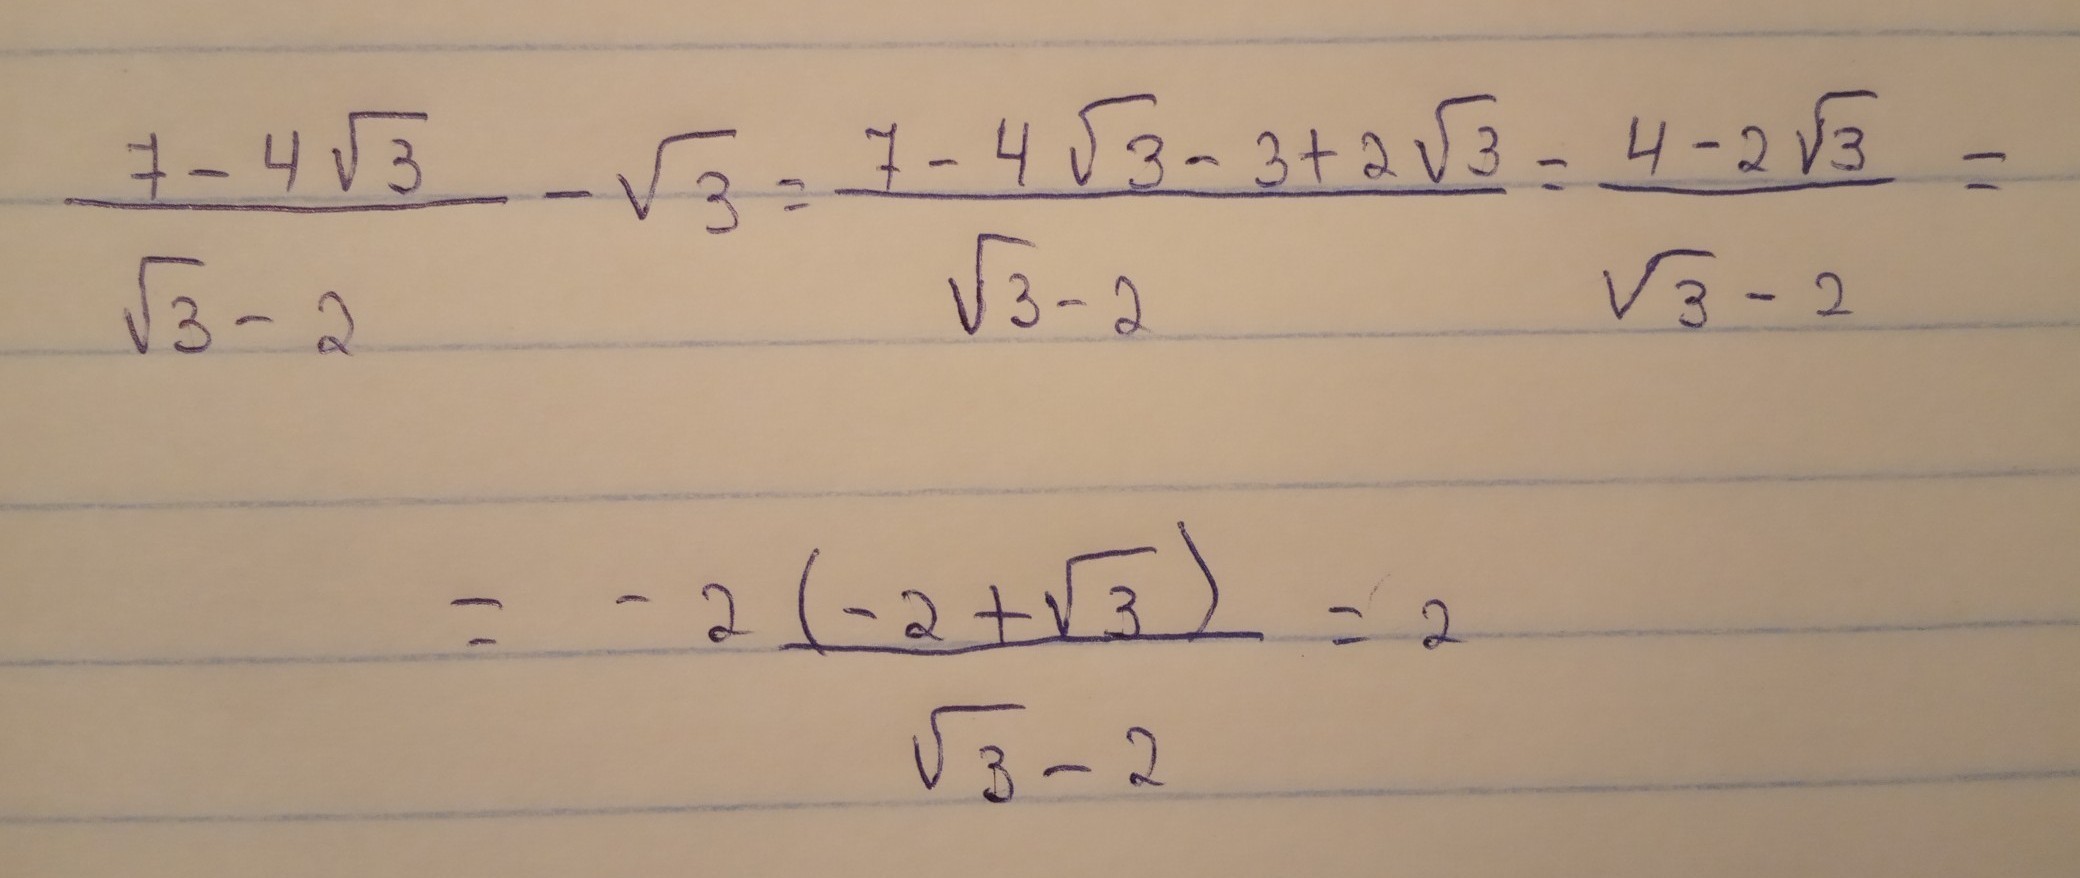 (7 - 4√3)/(√3 - 2) - √3 = (7 - 4√3 - 3 + 2√3)/(√3 - 2) = (4 - 2√3)/(√3 - 2) =
= -2 (-2 + √3)/(√3 - 2) = 2